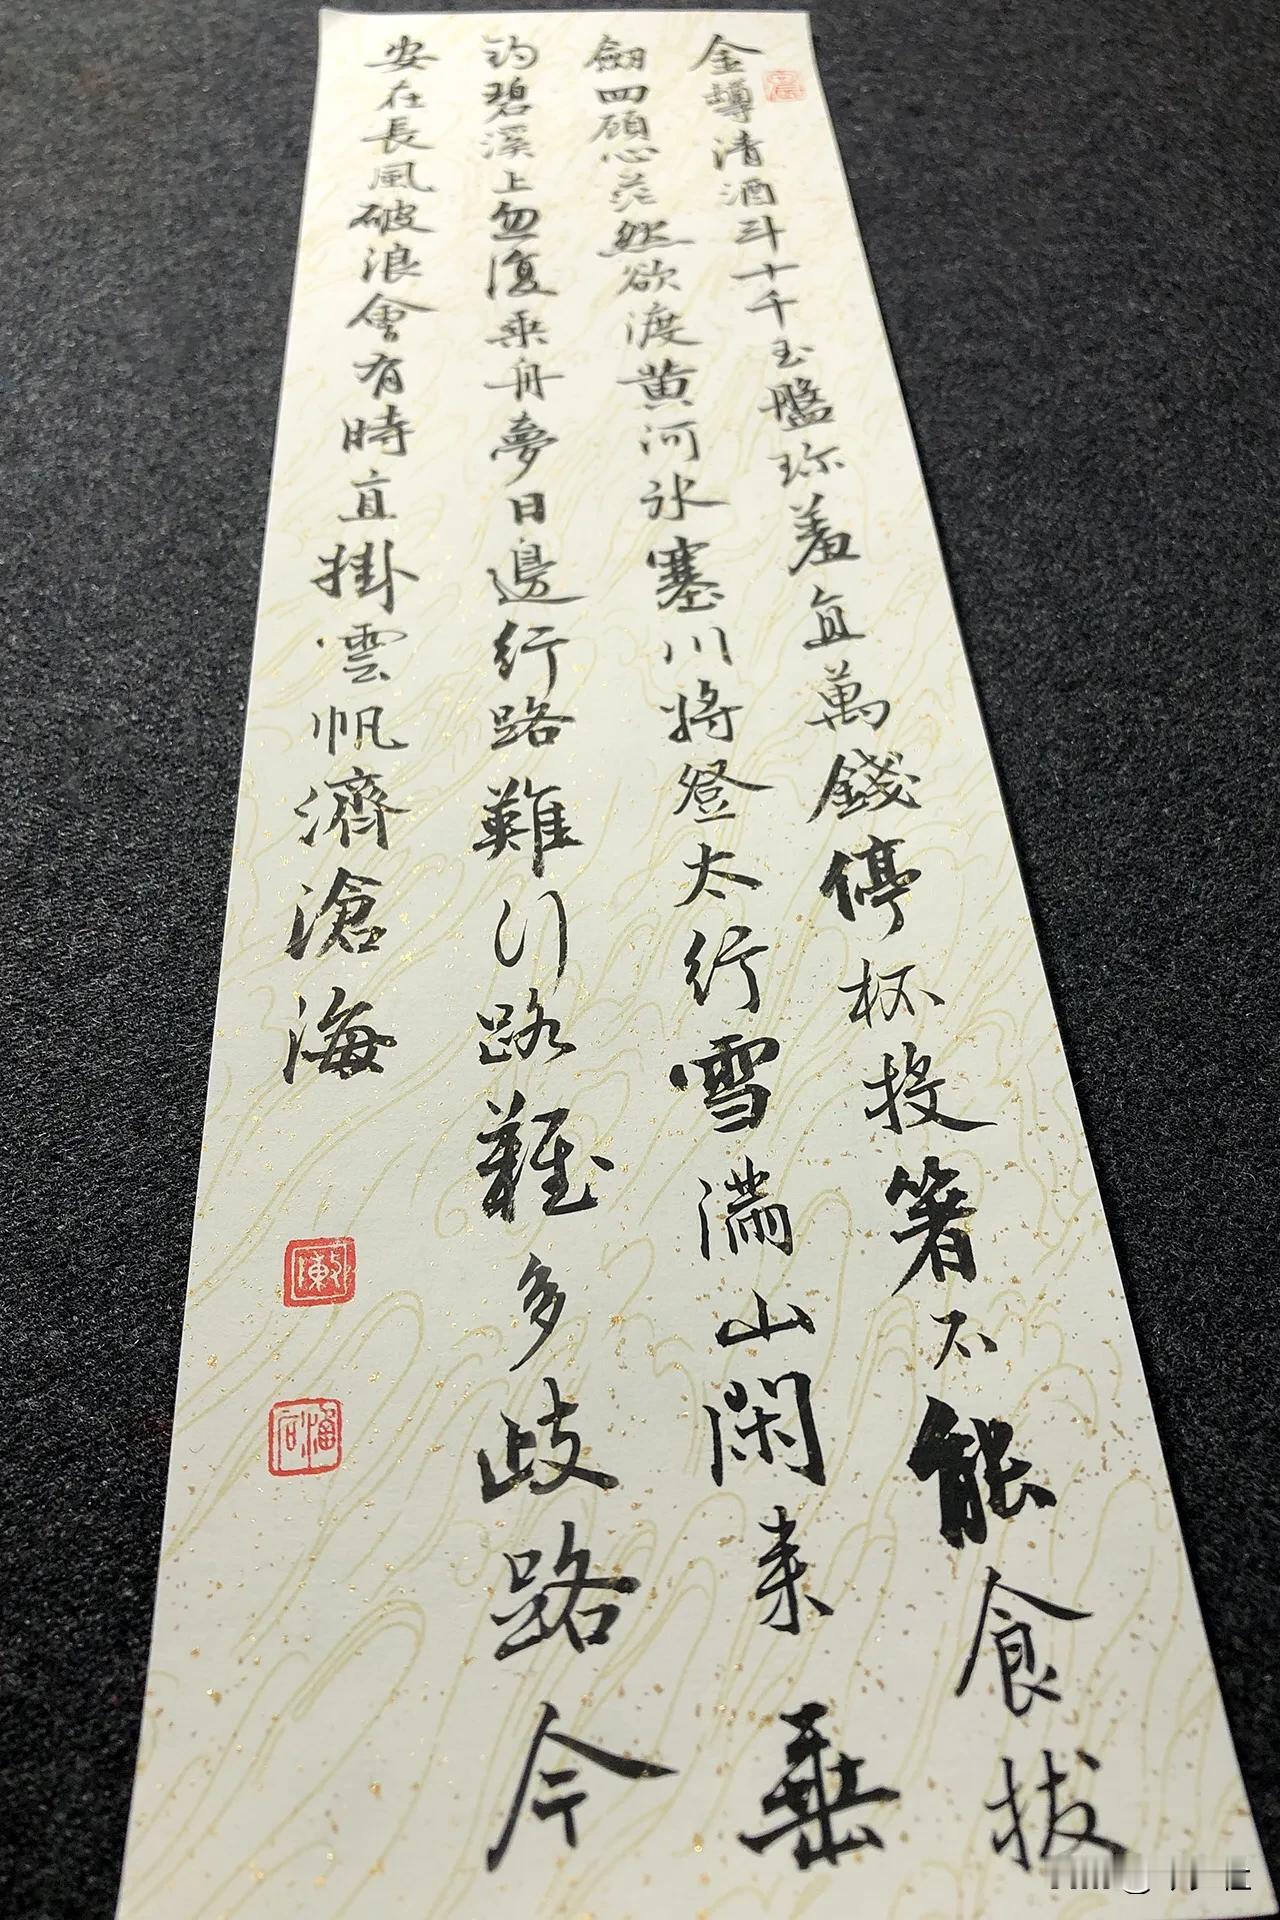 金罇清酒斗十千玉盤珎羞直萬錢停杯投箸不能食拔
劔四顧心茫然欲渡黄河冰塞川將登太行雪滿山閑來垂
釣碧溪上忽復乗舟夢日邊行路難行路難多歧路今
安在長風破浪會有時直掛雲帆濟滄海